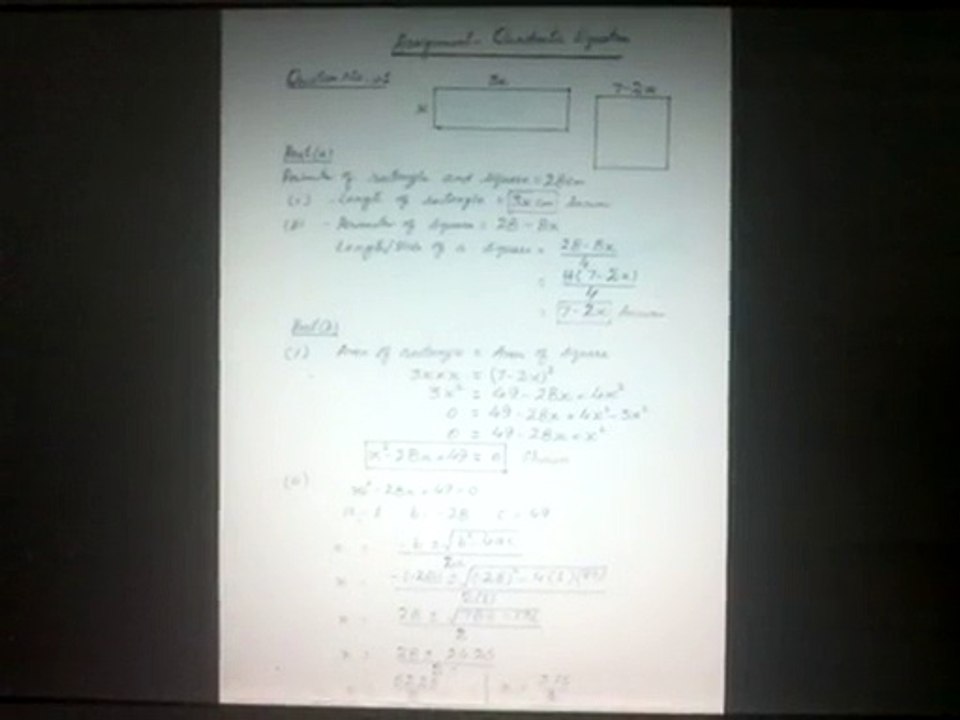 Assignment - Quadratic Equation
Question No. 01
3x
x
7-2x
Part (a)
Perimeter of rectangle and square = 28cm
(i) - Length of rectangle = 3x cm Answer
(ii) - Perimeter of square = 28 - 8x
Length/Side of a square = 28-8x / 4
= 4(7-2x) / 4
= 7-2x Answer
Part (b)
(i) Area of rectangle = Area of square
3x × x = (7-2x)²
3x² = 49 - 28x + 4x²
0 = 49 - 28x + 4x² - 3x²
0 = 49 - 28x + x²
x² - 28x + 49 = 0 Answer
(ii) x² - 28x + 49 = 0
a = 1 b = -28 c = 49
x = -b ± √b² - 4ac / 2a
x = -(-28) ± √(-28)² - 4(1)(49) / 2(1)
x = 28 ± √784 - 196 / 2
x = 28 ± 24.25 / 2